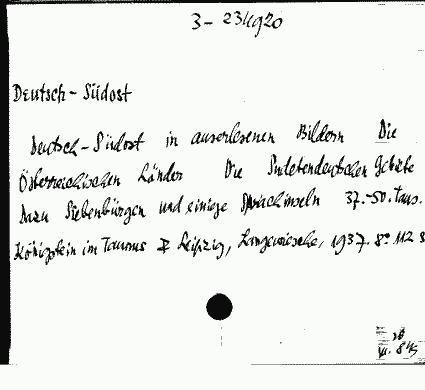 3- 234920
Deutsch-Südost
Deutsch-Südost in auserlesenen Bildern Die
Österreichischen Länder Die Sudetendeutschen Gebiete
Dazu Siebenbürgen und einige Sprachinseln 37.-50. Taus.
Königstein im Taunus & Leipzig, Langewiesche, 1937. 8° 112 S